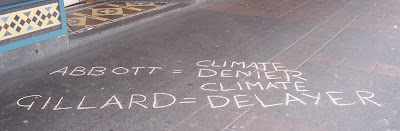 ABBOTT = CLIMATE DENIER
GILLARD = CLIMATE DELAYER